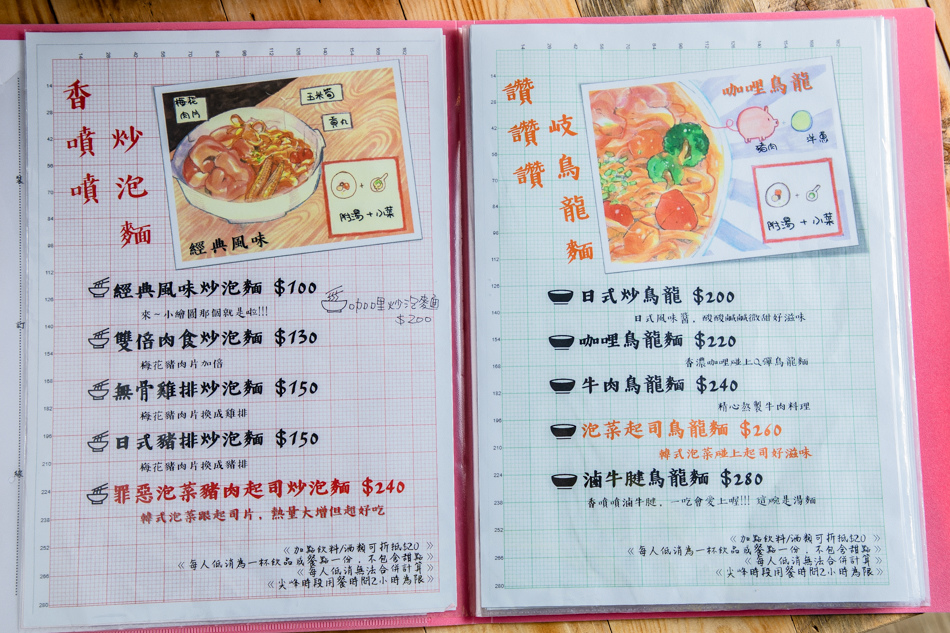 香噴噴
炒泡麵
梅花
肉片
玉米筍
貢丸
附湯+小菜
經典風味
經典風味炒泡麵 $100
來~小繪圖那個就是啦!!!
咖哩炒泡麵
$200
雙倍肉食炒泡麵 $130
梅花豬肉片加倍
無骨雞排炒泡麵 $150
梅花豬肉片換成雞排
日式豬排炒泡麵 $150
梅花豬肉片換成豬排
罪惡泡菜豬肉起司炒泡麵 $240
韓式泡菜跟起司片，熱量大增但超好吃
《加點飲料/酒類可折抵$20》
《每人低消為一杯飲品或餐點一份，不包含甜點》
《每人低消無法合併計算》
《尖峰時段用餐時間2小時為限》
裝
訂
線
讚讚讚
岐烏龍麵
咖哩烏龍
豬肉
附湯+小菜
日式炒烏龍 $200
日式風味醬，酸酸鹹鹹微甜好滋味
咖哩烏龍麵 $220
香濃咖哩碰上Q彈烏龍麵
牛肉烏龍麵 $240
精心熬製牛肉料理
泡菜起司烏龍麵 $260
韓式泡菜碰上起司好滋味
滷牛腱烏龍麵 $280
香噴噴滷牛腱，一吃會愛上喔!!! 這碗是湯麵
《加點飲料/酒類可折抵$20》
《每人低消為一杯飲品或餐點一份，不包含甜點》
《每人低消無法合併計算》
《尖峰時段用餐時間2小時為限》